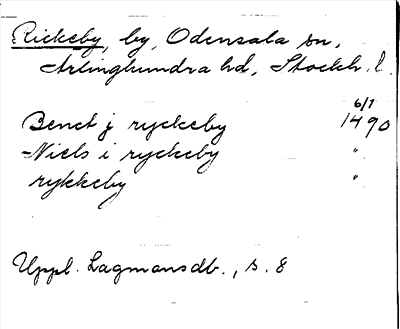 Rickeby, by, Odensala sn,
Ärlinghundra hd, Stockh. l.
6/7
Benct j ryckeby 1490
Niels i ryckeby "
rykkeby "
Uppl. Lagmansdb., s. 8